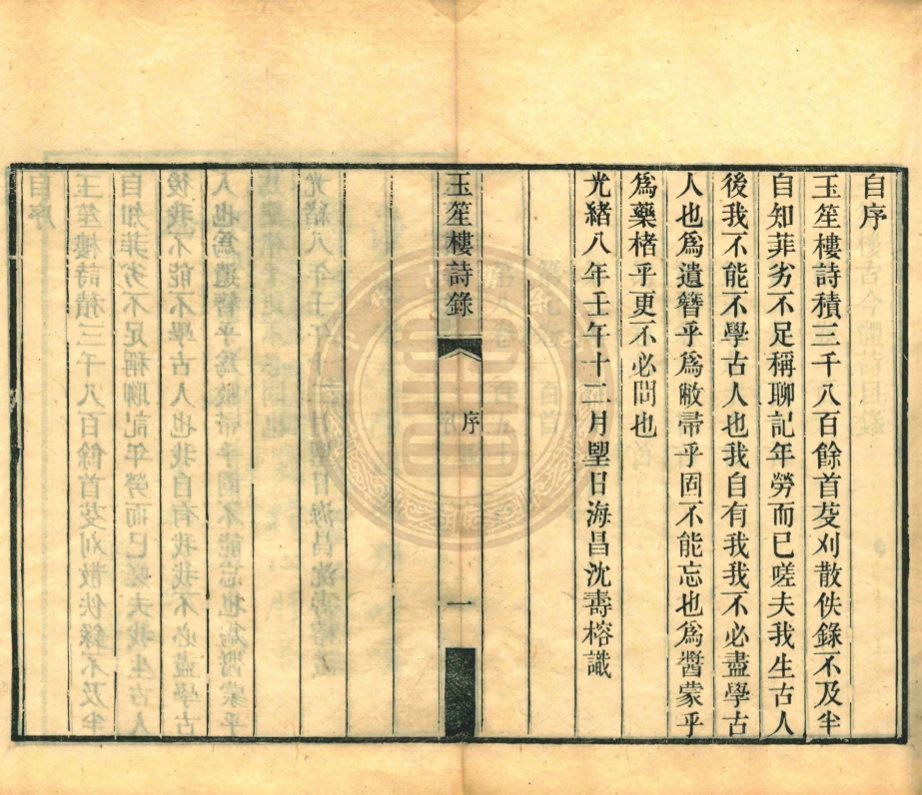 自序
玉笙樓詩積三千八百餘首芟刈散佚錄不及半
自知菲劣不足稱聊記年勞而已嗟夫我生古人
後我不能不學古人也我自有我我不必盡學古
人也為遺簪乎為敝帚乎固不能忘也為醬蒙乎
為藥楮乎更不必問也
光緒八年壬午十二月朢日海昌沈壽榕識
玉笙樓詩錄
序
一